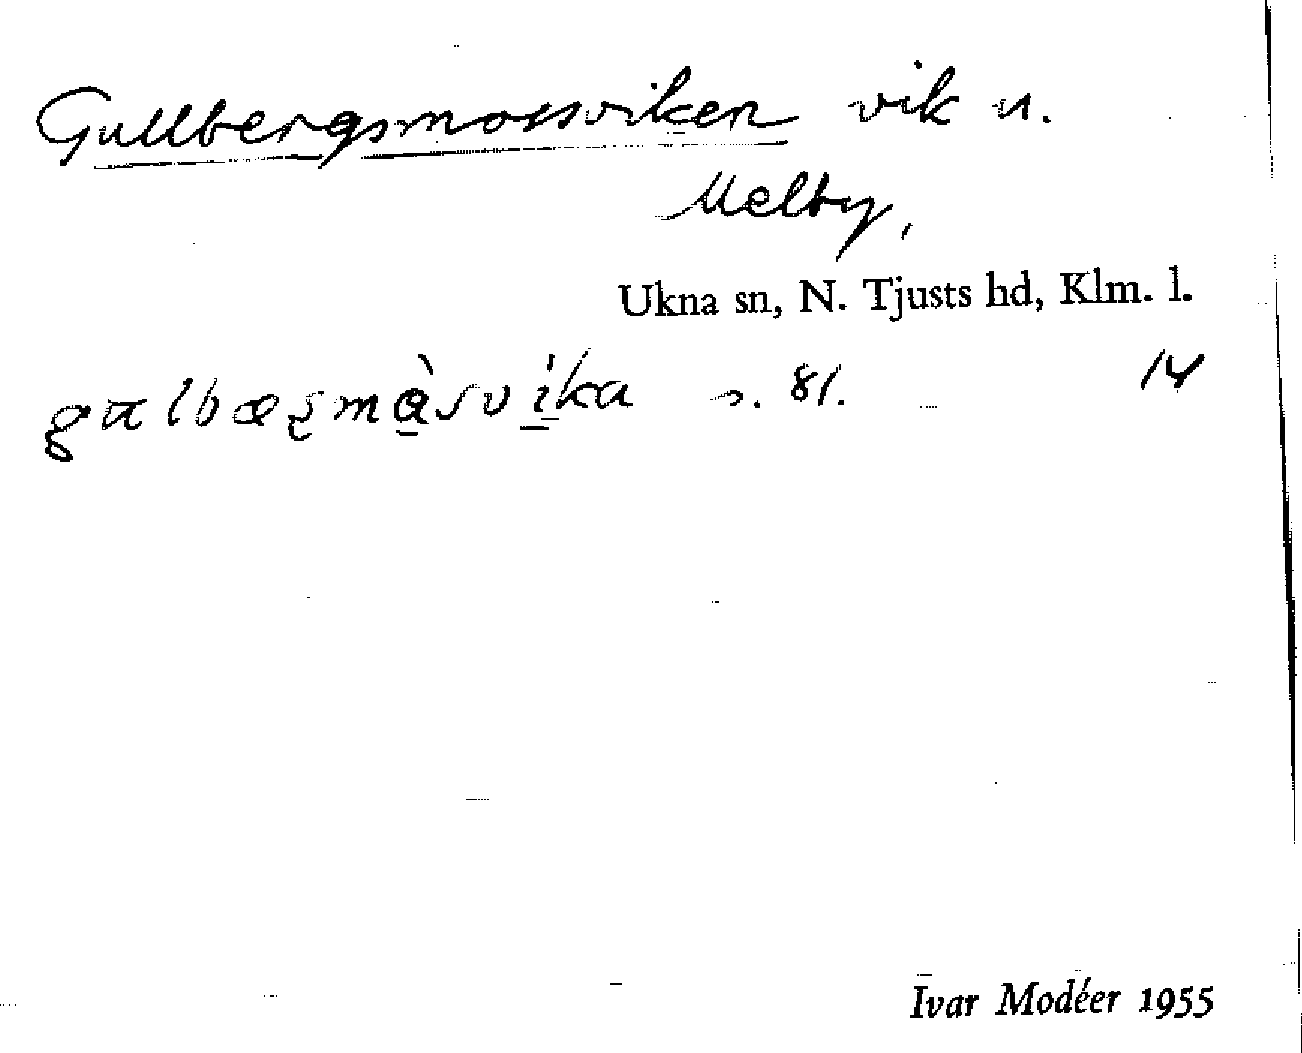 Gullbergsmossviken vik u.
Melby,
Ukna sn, N. Tjusts hd, Klm. l.
s. 81. 14
Ivar Modéer 1955